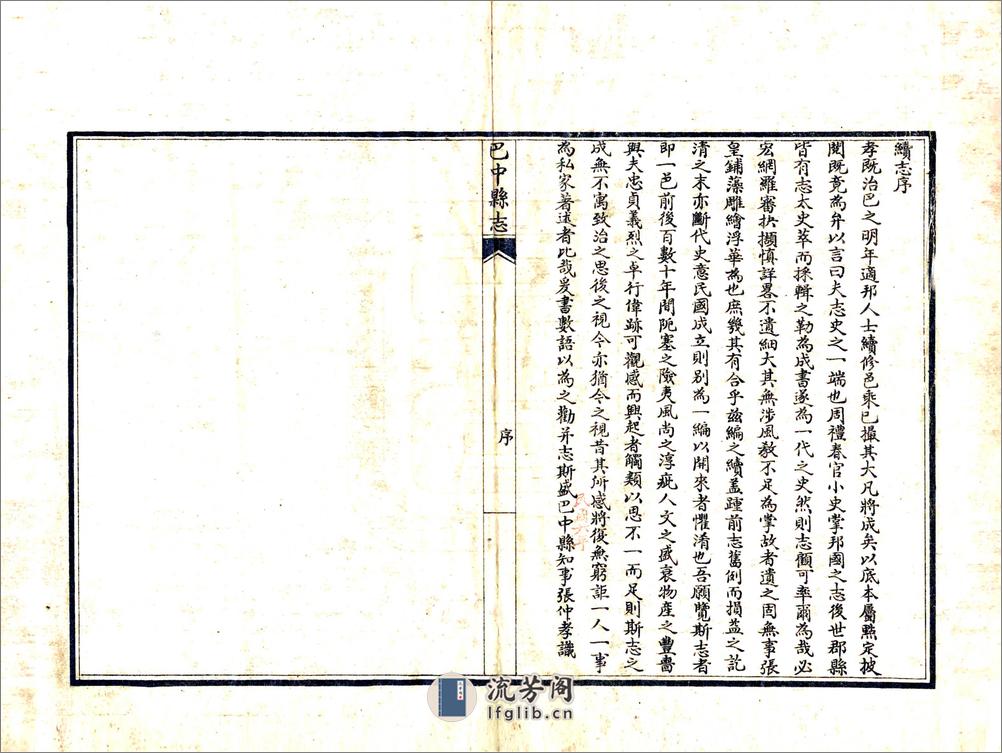 續志序
孝既治巴之明年適邦人士續修邑乘已撮其大凡將成矣以底本屬點定披
閱既竟為弁以言曰夫志史之一端也周禮春官小史掌邦國之志後世郡縣
皆有志太史萃而採輯之勒為成書遂為一代之史然則志顧可率爾為哉必
宏網羅審抉擷慎詳畧不遺細大其無涉風教不足為掌故者遺之固無事張
皇鋪藻雕繪浮華為也庶幾其有合乎茲編之續盖踵前志舊例而損益之訖
清之末亦斷代史意民國成立則別為一編以開來者懼淆也吾願覽斯志者
即一邑前後百數十年間阨塞之險夷風尚之淳疵人文之盛衰物產之豐嗇
與夫忠貞義烈之卓行偉跡可觀感而興起者觸類以思不一而足則斯志之
成無不寓致治之思後之視今亦猶今之視昔其所感將復無窮詎一人一事
為私家著述者比哉爰書數語以為之勸并志斯盛巴中縣知事張仲孝識
民國六年
巴中縣志
序
流芳阁
lfglib.cn